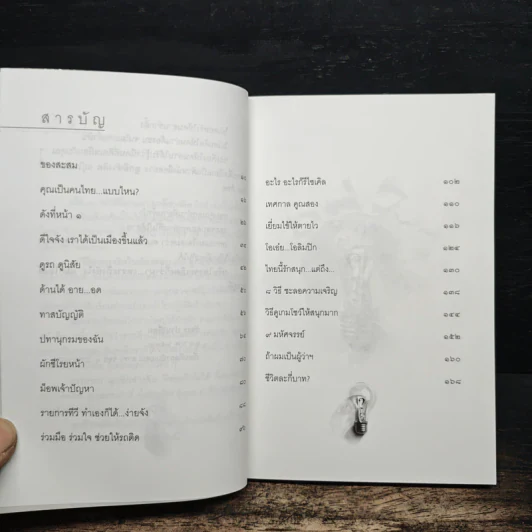 สารบัญ
ของสะสม
คุณเป็นคนไทย...แบบไหน?
ดังที่หน้า ๑
ดีใจจัง เราได้เป็นเมืองขึ้นแล้ว
ดูรถ ดูนิสัย
ด้านได้ อาย...อด
ทาสบัญญัติ
ปทานุกรมของฉัน
ผักชีโรยหน้า
มือพเจ้าปัญหา
รายการทีวี ทำเองก็ได้...ง่ายจัง
ร่วมมือ ร่วมใจ ช่วยให้รถติด
อะไร อะไรก็รีไซเคิล ๑๐๒
เทศกาล คูณสอง ๑๑๐
เยี่ยมไข้ให้ตายไว ๑๑๖
โอเย่ย...โอลิมปิก ๑๒๔
ไทยนี้รักสนุก...แต่ถึง... ๑๓๐
๘ วิธี ชะลอความเจริญ ๑๓๘
วิธีดูเกมโชว์ให้สนุกมาก ๑๔๔
๙ มหัศจรรย์ ๑๕๒
ถ้าผมเป็นผู้ว่าฯ ๑๖๐
ชีวิตละกี่บาท? ๑๖๘